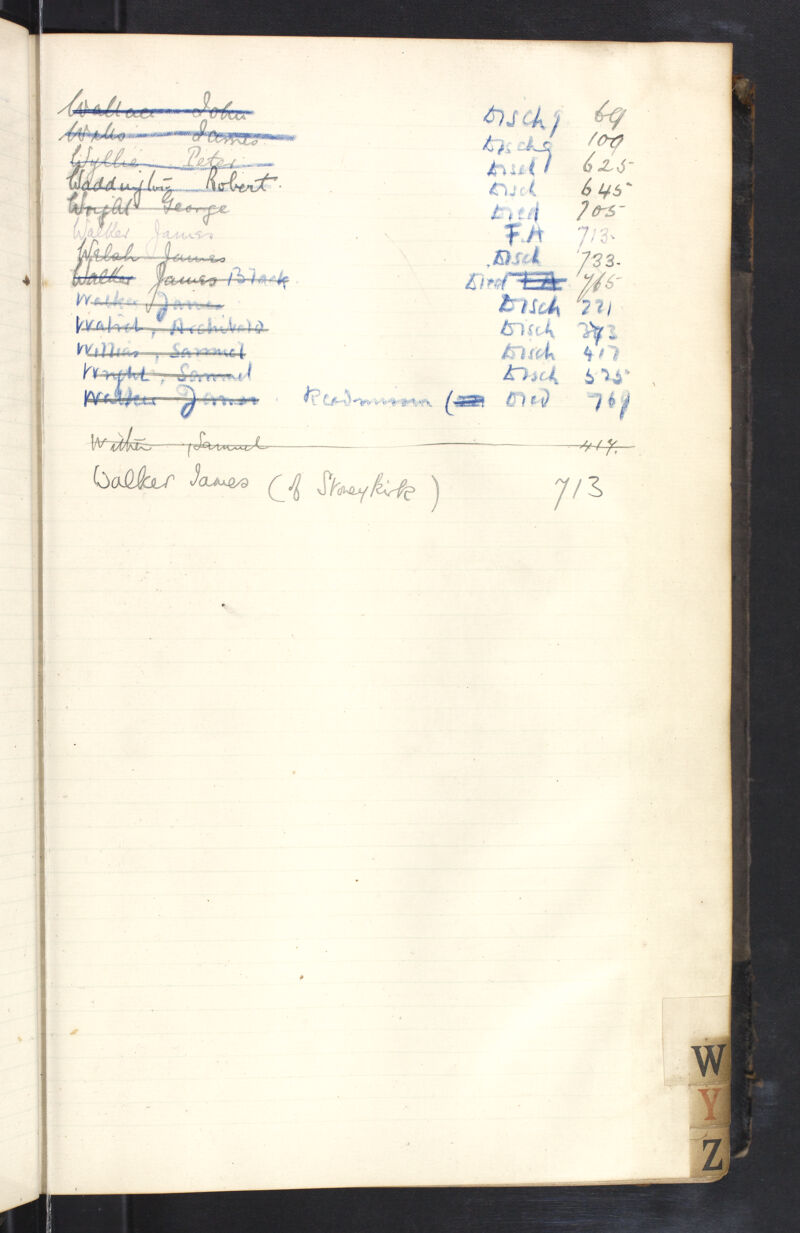 Wallace John Dischg 69
James Dischg 109
Wyllie Peter Disch 625
Waddington Robert. Disch 645
Wright George Died 705
Walker James F.A 713.
Welsh James Disch 733.
Walker James Black Died 765
Walker James Disch 221
Archibald Disch
Samuel Disch 417
Wright, Samuel Disch 525
Walker James Readmission ( Died 769
Samuel 417.
Walker James (of Stoneykirk) 713
W
Y
Z